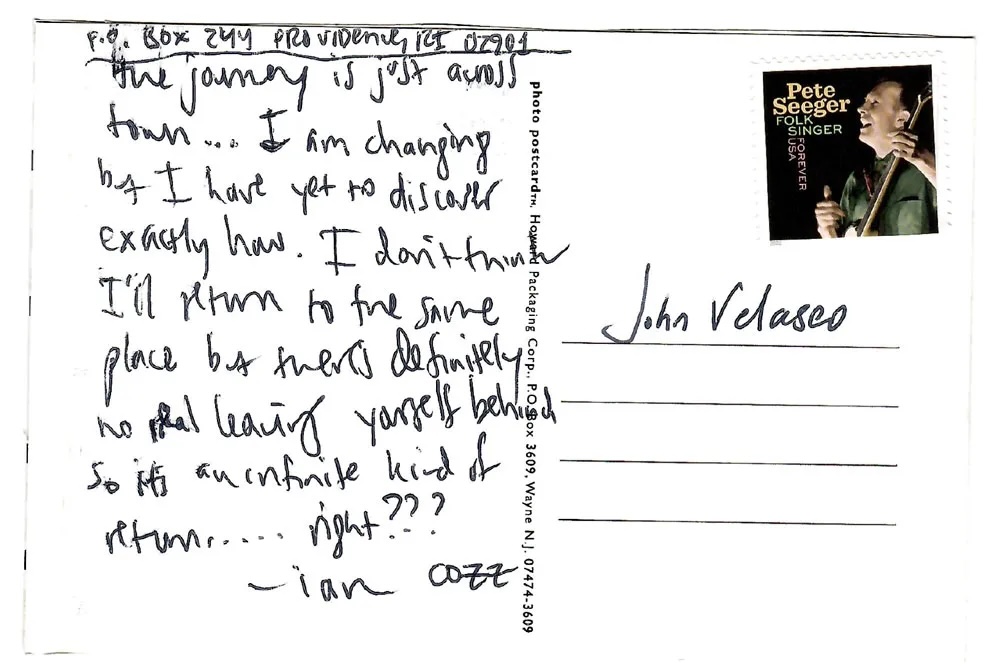 P.O. BOX 244 PROVIDENCE, RI 02901
the journey is just across
town... I am changing
but I have yet to discover
exactly how. I don't think
I'll return to the same
place but there's definitely
no real leaving yourself behind
so it's an infinite kind of
return..... right???
-ian cozz
photo postcard™, Howard Packaging Corp., P.O. Box 3609, Wayne N.J. 07474-3609
Pete
Seeger
FOLK
SINGER
FOREVER
USA
John Velasco